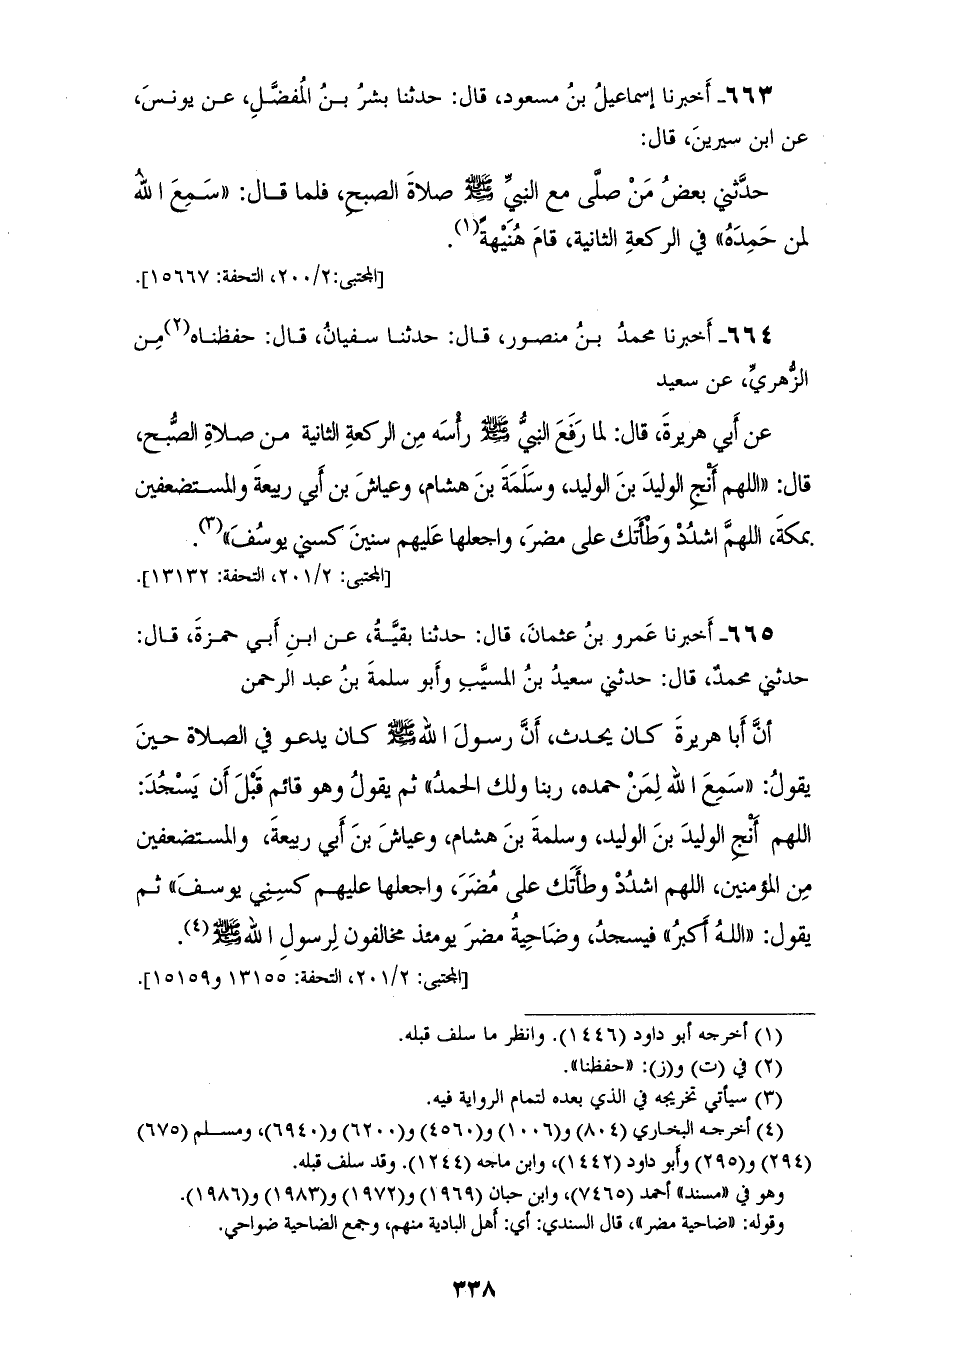 ٦٦٣ـ أَخبرنا إسماعيلُ بنُ مسعود، قال: حدثنا بشرُ بـنُ المُفضَّلِ، عـن يونسَ،
عن ابن سيرينَ، قال:
حدَّثني بعضُ مَنْ صلَّى مع النبيِّ ﷺ صلاةَ الصبحِ، فلما قـال: «سَـمِعَ اللهُ
لمن حَمِدَهُ» في الركعةِ الثانية، قامَ هُنَيْهةً(١).
[المجتبى:٢٠٠/٢، التحفة: ١٥٦٦٧].
٦٦٤ـ أَخبرنا محمدُ بـنُ منصـور، قـال: حدثنـا سـفيانُ، قـال: حفظنـاه(٢)مِـن
الزُّهريِّ، عن سعيد
عن أَبي هريرةَ، قال: لما رَفَعَ النبيُّ ﷺ رأْسَه مِن الركعةِ الثانية مـن صـلاةِ الصُّبـح،
قال: «اللهم أَنْجِ الوليدَ بنَ الوليد، وسَلَمَةَ بنَ هشام، وعياشَ بن أَبي ربيعةَ والمستضعفين
بمكةَ، اللهمَّ اشدُدْ وَطْأَتَك على مضرَ، واجعلها عَليهم سنينَ كسني يوسُفَ»(٣).
[المجتبى: ٢٠١/٢، التحفة: ١٣١٣٢].
٦٦٥ـ أَخبرنا عَمرو بنُ عثمانَ، قال: حدثنا بقيَّـةُ، عـن ابـنِ أَبـي حمـزةَ، قـال:
حدثني محمدٌ، قال: حدثني سعيدُ بنُ المسيَّبِ وأَبو سلمةَ بنُ عبد الرحمن
أنَّ أَبا هريرةَ كـان يحدث، أَنَّ رسـولَ اللهﷺ كان يدعـو في الصلاة حـينَ
يقولُ: «سَمِعَ اللهُ لِمَنْ حمده، ربنا ولك الحمدُ» ثم يقولُ وهو قائم قَبْلَ أَن يَسْجُدَ:
اللهم أَنْجِ الوليدَ بنَ الوليد، وسلمةَ بنَ هشام، وعياشَ بنَ أَبي ربيعةَ، والمستضعفين
مِن المؤمنين، اللهم اشدُدْ وطأَتَك على مُضَرَ، واجعلها عليهـم كسِـنِي يوسـفَ» ثـم
يقول: «اللـهُ أَكبرُ» فيسجدُ، وضَاحِيةُ مضرَ يومئذ مخالفون لِرسولِ اللهﷺ(٤).
[المجتبى: ٢٠١/٢، التحفة: ١٣١٥٥ و١٥١٥٩].
(١) أخرجه أبو داود (١٤٤٦). وانظر ما سلف قبله.
(٢) في (ت) و(ز): «حفظنا».
(٣) سيأتي تخريجه في الذي بعده لتمام الرواية فيه.
(٤) أخرجـه البخـاري (٨٠٤) و(١٠٠٦) و(٤٥٦٠) و(٦٢٠٠) و(٦٩٤٠)، ومسـلم (٦٧٥)
(٢٩٤) و(٢٩٥) وأبو داود (١٤٤٢)، وابن ماجه (١٢٤٤). وقد سلف قبله.
وهو في «مسند» أحمد (٧٤٦٥)، وابن حبان (١٩٦٩) و(١٩٧٢) و(١٩٨٣) و(١٩٨٦).
وقوله: «ضاحية مضر»، قال السندي: أي: أهل البادية منهم، وجمع الضاحية ضواحي.
٣٣٨